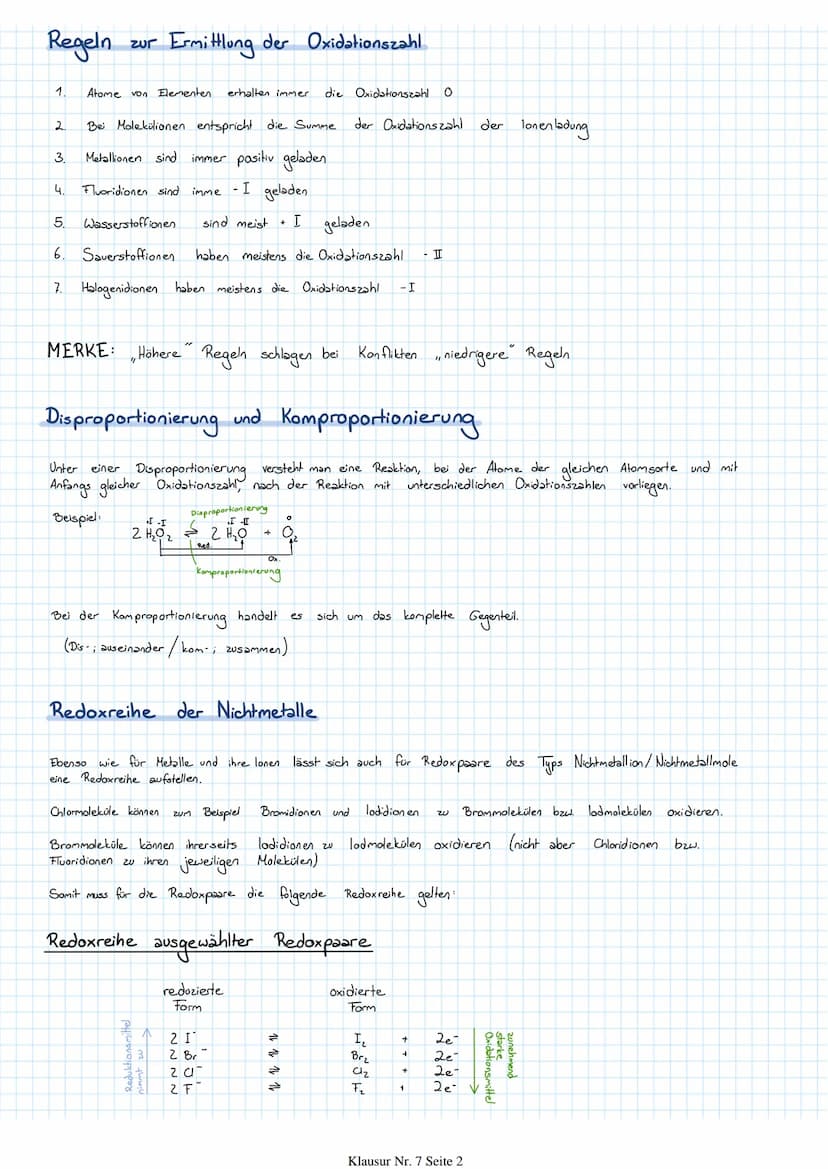 Regeln zur Ermittlung der Oxidationszahl
1. Atome von Elementen erhalten immer die Oxidationszahl 0
2. Bei Molekülionen entspricht die Summe der Oxidationszahl der Ionenladung
3. Metallionen sind immer positiv geladen
4. Fluoridionen sind imme -I geladen
5. Wasserstoffionen sind meist +I geladen
6. Sauerstoffionen haben meistens die Oxidationszahl -II
7. Halogenidionen haben meistens die Oxidationszahl -I
MERKE: „Höhere“ Regeln schlagen bei Konflikten „niedrigere“ Regeln
Disproportionierung und Komproportionierung
Unter einer Disproportionierung versteht man eine Reaktion, bei der Atome der gleichen Atomsorte und mit
Anfangs gleicher Oxidationszahl, nach der Reaktion mit unterschiedlichen Oxidationszahlen vorliegen.
Disproportionierung
Beispiel:
+I -I +I -II 0
2 H₂O₂ ⇌ 2 H₂O + O₂
Red.
Ox.
Komproportionierung
Bei der Komproportionierung handelt es sich um das komplette Gegenteil.
(Dis-; auseinander / kom-; zusammen)
Redoxreihe der Nichtmetalle
Ebenso wie für Metalle und ihre Ionen lässt sich auch für Redoxpaare des Typs Nichtmetallion/Nichtmetallmole
eine Redoxreihe aufstellen.
Chlormoleküle können zum Beispiel Bromidionen und Iodidionen zu Brommolekülen bzw. Iodmolekülen oxidieren.
Brommoleküle können ihrerseits Iodidionen zu Iodmolekülen oxidieren (nicht aber Chloridionen bzw.
Fluoridionen zu ihren jeweiligen Molekülen)
Somit muss für die Redoxpaare die folgende Redoxreihe gelten:
Redoxreihe ausgewählter Redoxpaare
reduzierte oxidierte
Form Form
2 I⁻ ⇌ I₂ + 2e⁻
2 Br⁻ ⇌ Br₂ + 2e⁻
2 Cl⁻ ⇌ Cl₂ + 2e⁻
2 F⁻ ⇌ F₂ + 2e⁻
Reduktionsmittel
nimmt zu
zunehmend
starke
Oxidationsmittel
Klausur Nr. 7 Seite 2